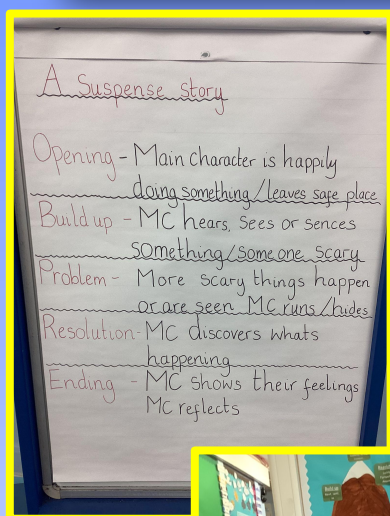 A Suspense Story
Opening - Main character is happily
doing something/leaves safe place
Build up - MC hears, sees or sences
something/someone scary
Problem - More scary things happen
or are seen MC runs/hides
Resolution - MC discovers whats
happening
Ending - MC shows their feelings
MC reflects